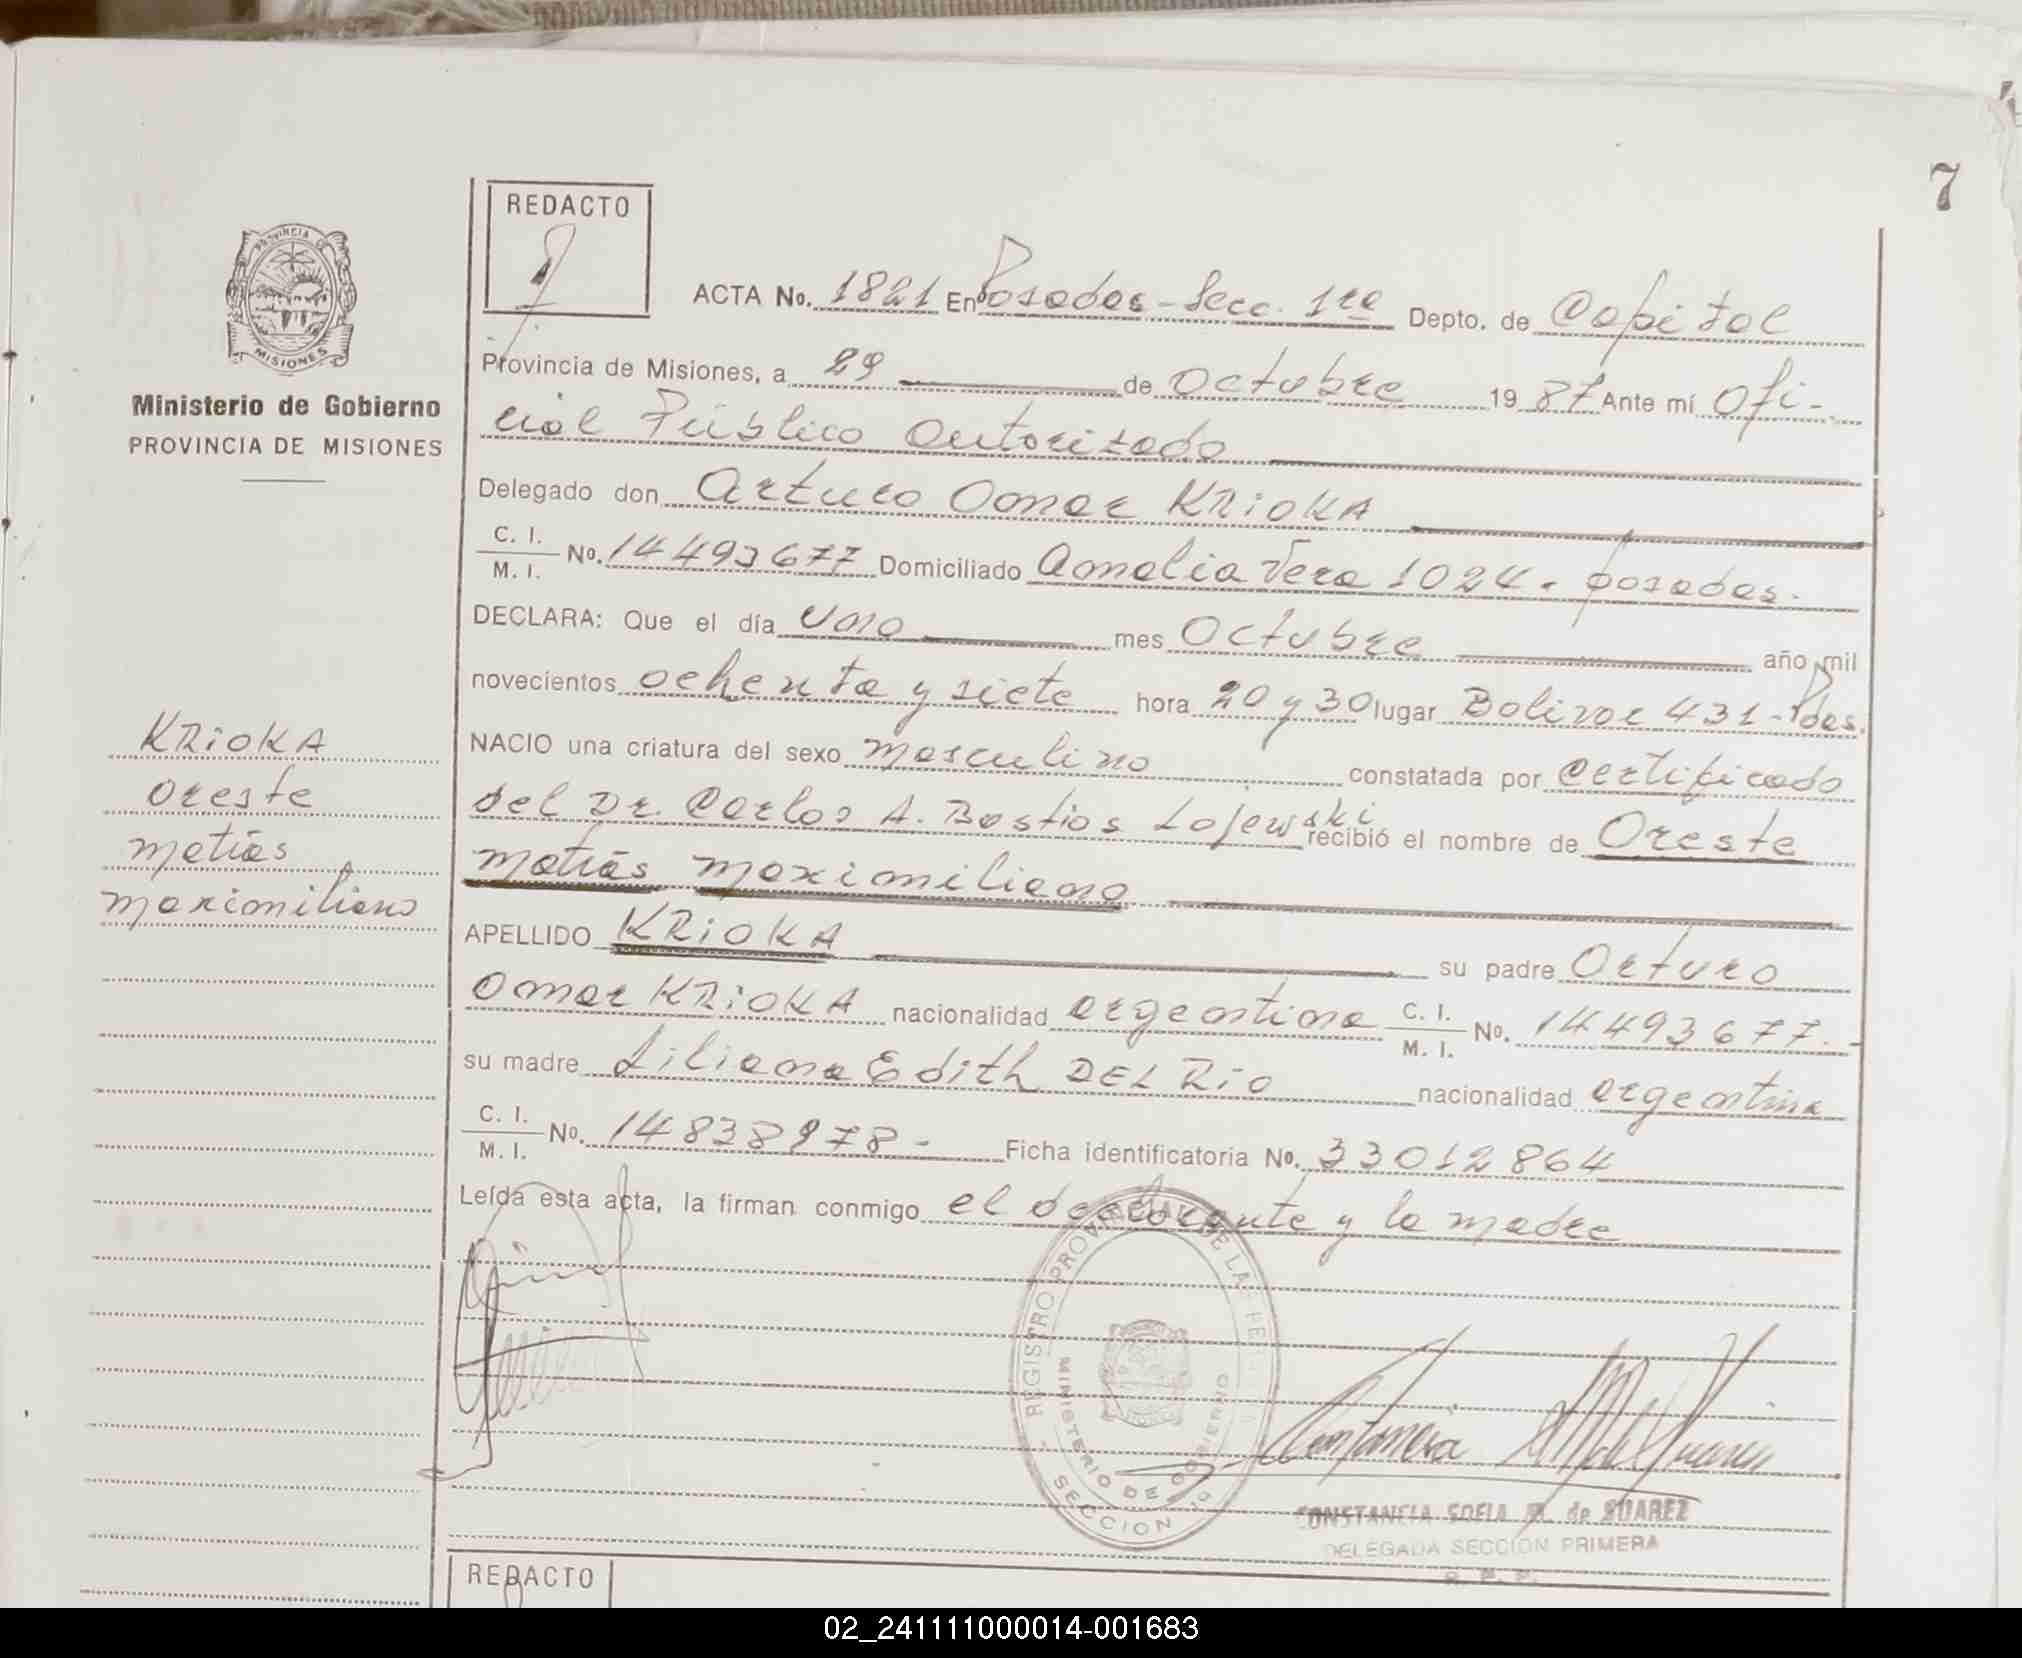 7
REDACTO
PROVINCIA DE
MISIONES
Ministerio de Gobierno
PROVINCIA DE MISIONES
ACTA No. 1821 En Posadas - Secc. 1ra Depto. de Capital
Provincia de Misiones, a 29 de Octubre 1987 Ante mí Ofi-
cial Público Autorizado
Delegado don Arturo Omar KRIOKA
C. I.
M. I. No. 14493677 Domiciliado Amalia Vera 1024. posadas.
DECLARA: Que el día uno mes Octubre año mil
novecientos ochenta y siete hora 20 y 30 lugar Bolivar 431 - Pdas.
NACIO una criatura del sexo masculino constatada por certificado
del Dr. Carlos A. Bastios Lojewski recibió el nombre de Oreste
matías maximiliano
APELLIDO KRIOKA su padre Arturo
Omar KRIOKA nacionalidad argentina C. I. M. I. No. 14493677.-
su madre Liliana Edith DEL Rio nacionalidad argentina
C. I.
M. I. No. 14838978 - Ficha identificatoria No. 33012864
Leída esta acta, la firman conmigo el declarante y la madre
KRIOKA
Oreste
matías
maximiliano
REGISTRO PROVINCIAL DE LAS PERSONAS
MINISTERIO DE GOBIERNO
SECCION 1a
CONSTANCIA SOFIA M. de SUAREZ
DELEGADA SECCION PRIMERA
R. P. P.
REDACTO
02_241111000014-001683